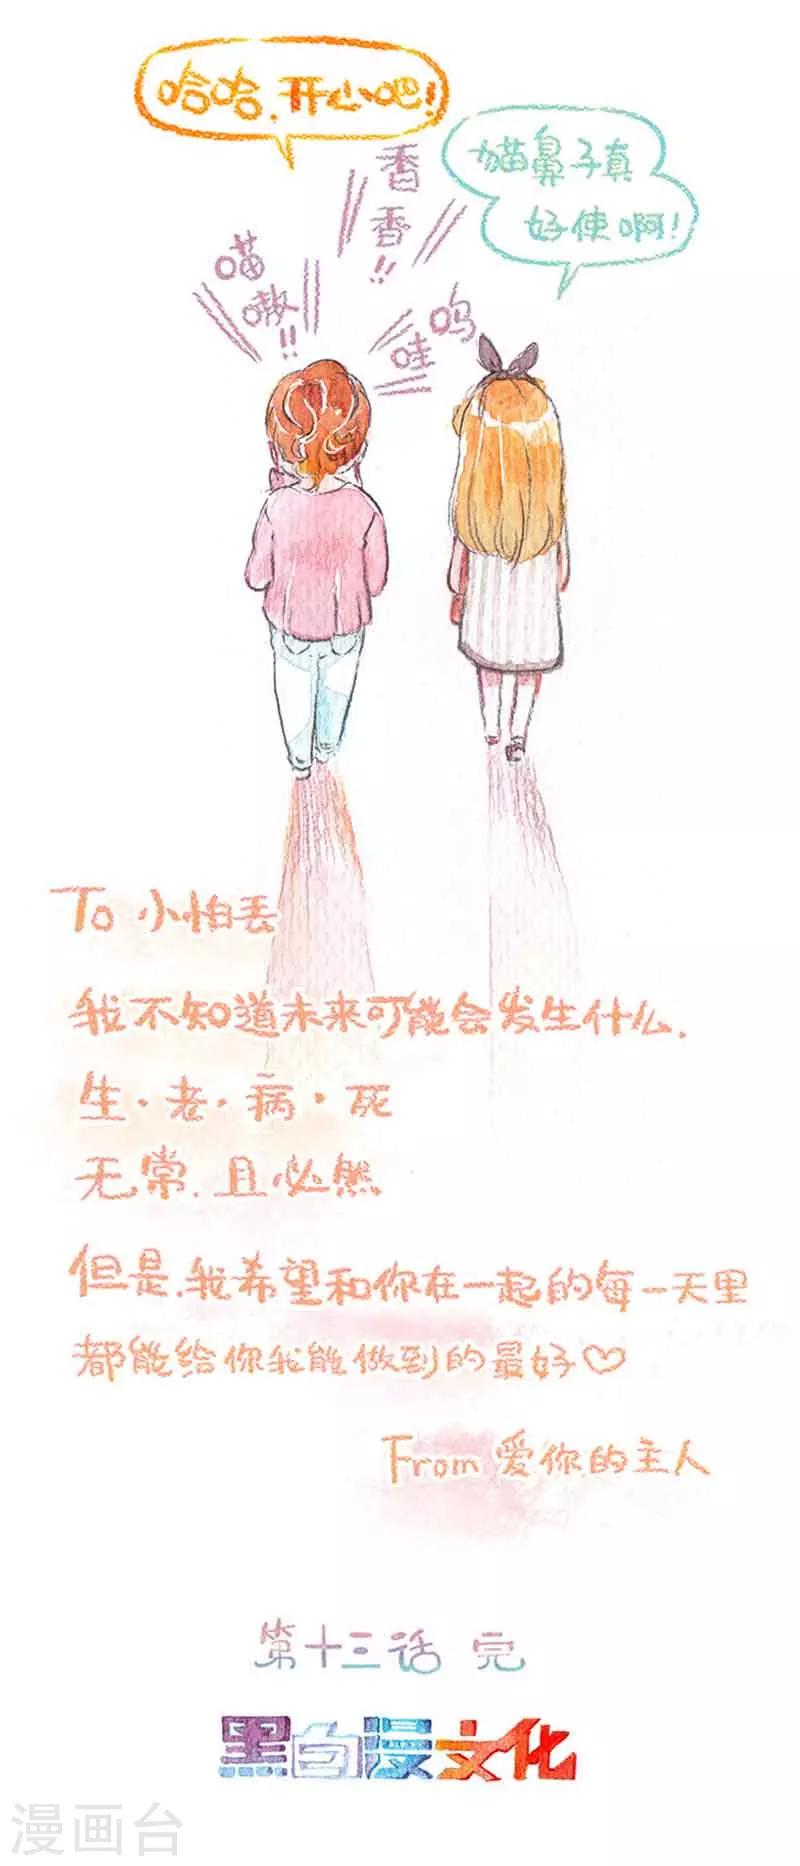 哈哈，开心吧！
猫鼻子真
好使啊！
香
香
!!
喵
嗷
!!
呜
哇
To 小怕丢
我不知道未来可能会发生什么.
生·老·病·死
无常.且必然
但是,我希望和你在一起的每一天里
都能给你我能做到的最好♡
From 爱你的主人
第十三话 完
黑白漫文化
漫画台